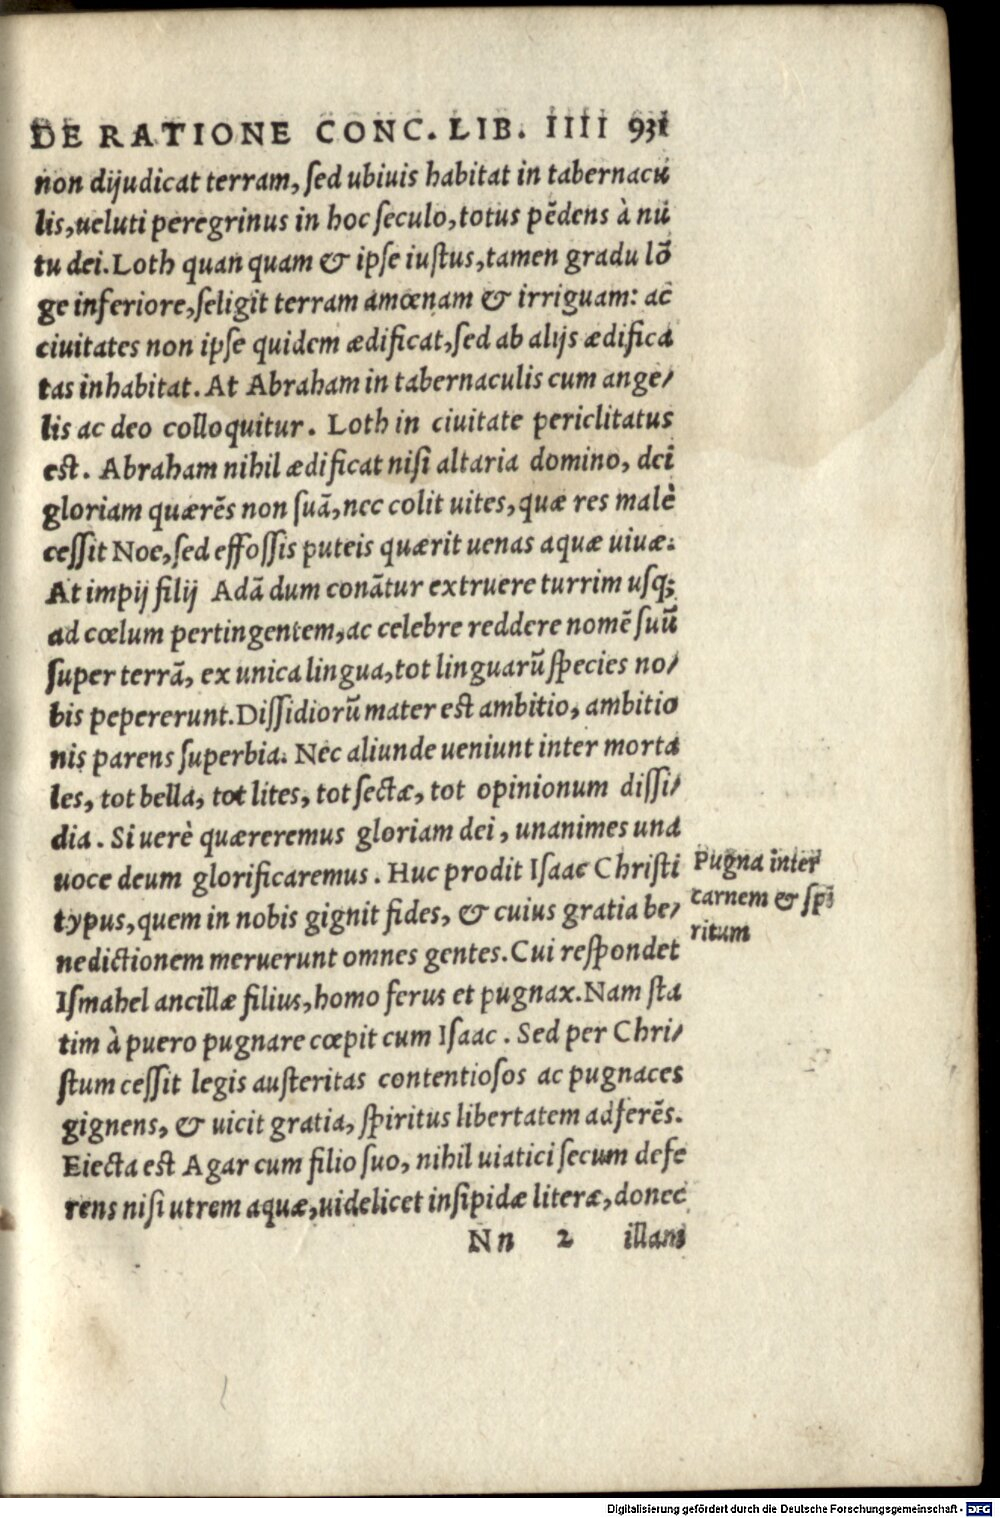 DE RATIONE CONC. LIB. IIII 931
non dijudicat terram, ſed ubiuis habitat in tabernacu
lis, ueluti peregrinus in hoc ſeculo, totus pẽdens à nu
tu dei. Loth quanquam & ipſe iuſtus, tamen gradu lõ
ge inferiore, ſeligit terram amœnam & irriguam: ac
ciuitates non ipſe quidem ædificat, ſed ab alijs ædifica
tas inhabitat. At Abraham in tabernaculis cum ange/
lis ac deo colloquitur. Loth in ciuitate periclitatus
est. Abraham nihil ædificat niſi altaria domino, dei
gloriam quærẽs non ſuã, nec colit uites, quæ res malè
ceſſit Noe, ſed effoſſis puteis quærit uenas aquæ uiuæ.
At impij filij Adã dum conãtur extruere turrim uſq;
ad cœlum pertingentem, ac celebre reddere nomẽ ſuũ
ſuper terrã, ex unica lingua, tot linguarũ ſpecies no/
bis pepererunt. Diſſidiorũ mater est ambitio, ambitio
nis parens ſuperbia. Nec aliunde ueniunt inter morta
les, tot bella, tot lites, tot ſectæ, tot opinionum diſſi/
dia. Si uerè quæreremus gloriam dei, unanimes una
uoce deum glorificaremus. Huc prodit Iſaac Chriſti
typus, quem in nobis gignit fides, & cuius gratia be/
nedictionem meruerunt omnes gentes. Cui reſpondet
Iſmahel ancillæ filius, homo ferus et pugnax. Nam ſta
tim à puero pugnare cœpit cum Iſaac. Sed per Chri/
ſtum ceſſit legis auſteritas contentioſos ac pugnaces
gignens, & uicit gratia, ſpiritus libertatem adferẽs.
Eiecta est Agar cum filio ſuo, nihil uiatici ſecum defe
rens niſi utrem aquæ, uidelicet inſipidæ literæ, donec
Nn 2 illam
Pugna inter
carnem & ſpi
ritum
Digitalisierung gefördert durch die Deutsche Forschungsgemeinschaft - DFG